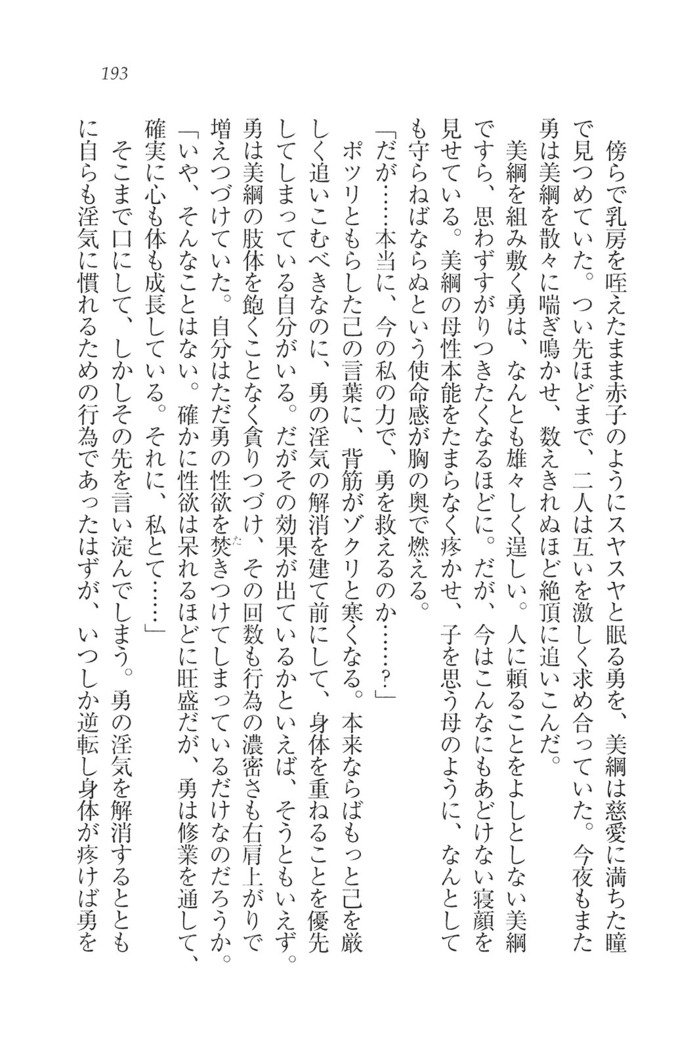 193
傍らで乳房を咥えたまま赤子のようにスヤスヤと眠る勇を、美綱は慈愛に満ちた瞳
で見つめていた。つい先ほどまで、二人は互いを激しく求め合っていた。今夜もまた
勇は美綱を散々に喘ぎ鳴かせ、数えきれぬほど絶頂に追いこんだ。
美綱を組み敷く勇は、なんとも雄々しく逞しい。人に頼ることをよしとしない美綱
ですら、思わずすがりつきたくなるほどに。だが、今はこんなにもあどけない寝顔を
見せている。美綱の母性本能をたまらなく疼かせ、子を思う母のように、なんとして
も守らねばならぬという使命感が胸の奥で燃える。
「だが……本当に、今の私の力で、勇を救えるのか……?」
ポツリともらした己の言葉に、背筋がゾクリと寒くなる。本来ならばもっと己を厳
しく追いこむべきなのに、勇の淫気の解消を建て前にして、身体を重ねることを優先
してしまっている自分がいる。だがその効果が出ているかといえば、そうともいえず。
勇は美綱の肢体を飽くことなく貪りつづけ、その回数も行為の濃密さも右肩上がりで
増えつづけていた。自分はただ勇の性欲を焚きつけてしまっているだけなのだろうか。
「いや、そんなことはない。確かに性欲は呆れるほどに旺盛だが、勇は修業を通して、
確実に心も体も成長している。それに、私とて……」
そこまで口にして、しかしその先を言い淀んでしまう。勇の淫気を解消するととも
に自らも淫気に慣れるための行為であったはずが、いつしか逆転し身体が疼けば勇を